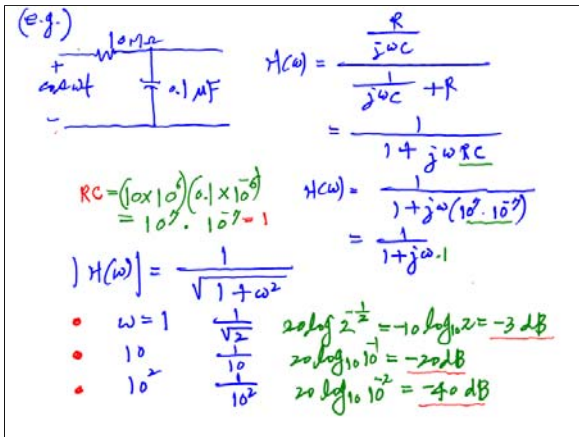 (e.g.)
10 MΩ
+
cos ωt
-
0.1 μF
H(ω) = \frac{\frac{R}{jωC}}{\frac{1}{jωC} + R}
= \frac{1}{1 + jωRC}
RC = (10×10^6)(0.1×10^{-6})
= 10^7 · 10^{-7} = 1
H(ω) = \frac{1}{1 + jω(10^7 · 10^{-7})}
= \frac{1}{1 + jω·1}
|H(ω)| = \frac{1}{\sqrt{1 + ω^2}}
• ω = 1 \frac{1}{\sqrt{2}} 20 log 2^{-\frac{1}{2}} = -10 log_{10} 2 = -3 dB
• 10 \frac{1}{10} 20 log_{10} 10^{-1} = -20 dB
• 10^2 \frac{1}{10^2} 20 log_{10} 10^{-2} = -40 dB